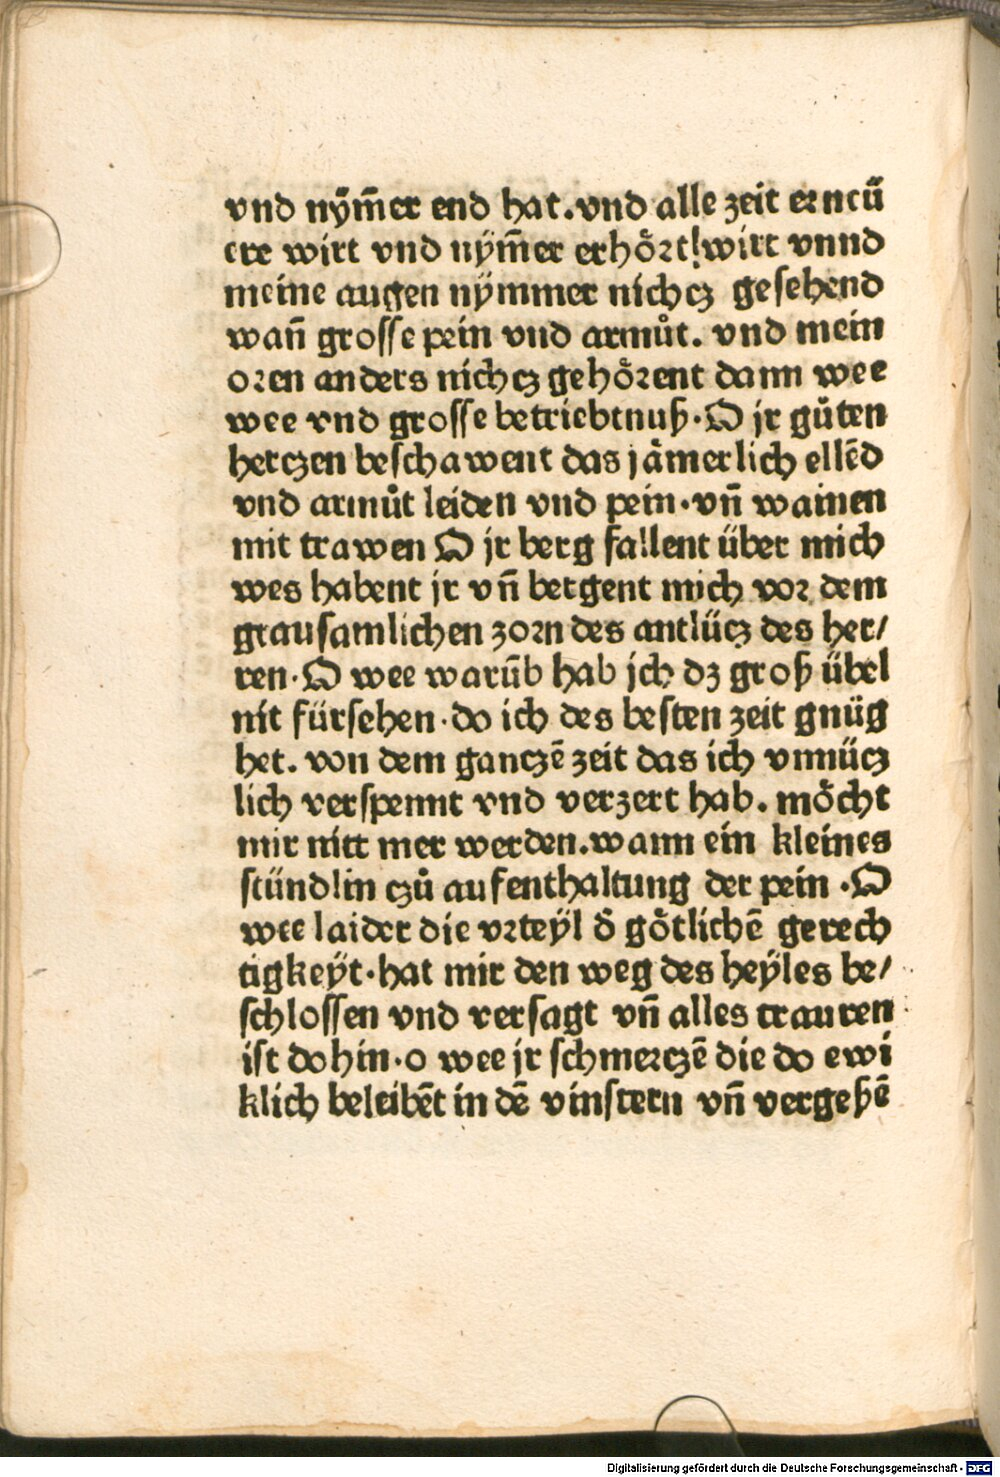 vnd nÿm̄er end hat. vnd alle zeit erneü
ere wirt vnd nÿm̄er erhört wirt vnnd
meine augen nÿmmer nichcz gesehend
wan̄ grosse pein vnd armůt. vnd mein
oren anders nichcz gehörent dann wee
wee vnd grosse betriebtnuß. O jr gůten
herczen beschawent das jämerlich ellēd
vnd armůt leiden vnd pein. vn̄ wainen
mit trawen O jr berg fallent über mich
wes habent jr vn̄ bergent mich vor dem
grausamlichen zorn des antlücz des her/
ren. O wee warūb hab jch dz groß übel
nit fürsehen. do ich des besten zeit gnüg
het. von dem ganczē zeit das ich vnnücz
lich verspennt vnd verzert hab. möcht
mir nitt mer werden. wann ein kleines
stündlin czů aufenthaltung der pein. O
wee laider die vrteÿl d̄ götlichē gerech
tigkeÿt. hat mir den weg des heÿles be/
schlossen vnd versagt vn̄ alles trauren
ist dohin. o wee jr schmerczē die do ewi
klich beleibēt in dē vinstern vn̄ vergeßē
Digitalisierung gefördert durch die Deutsche Forschungsgemeinschaft - DFG